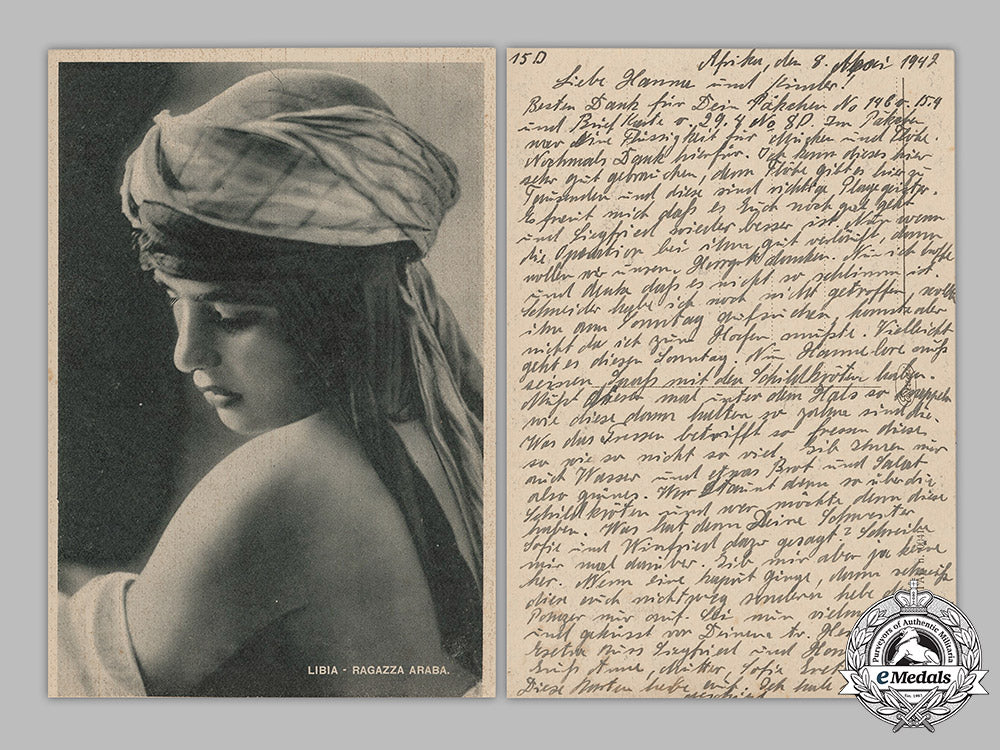 LIBIA - RAGAZZA ARABA.
15 D
Afrika, den 8. Mai 1942
Liebe Hanne und Kinder!
Besten Dank für Dein Päkchen No 146 v. 15.4
und Brief Karte v. 29.4 No 80. Im Päkchen
war eine Flüssigkeit für Mücken und Flöhe.
Nochmals Dank hierfür. Ich kann dieses hier
sehr gut gebrauchen, denn Flöhe gibt es hier zu
Tausenden und diese sind richtige Plagegeister.
Es freut mich daß es Euch noch gut geht
und Siegfried wieder besser ist. Nur wenn
die Operation bei ihm gut verläuft, dann
wollen wir unsern Herrgott danken. Nun ich hoffe
und denke daß es nicht so schlimm ist
Schneider habe ich noch nicht getroffen, wollte
ihn am Sonntag aufsuchen konnte aber
nicht da ich zum Hafen mußte. Vielleicht
geht es diesen Sonntag. Nun Hannelore muß
seinen Spaß mit den Schildkröten haben.
Müßt mal unter dem Hals so
wie diese dann halten so zahm sind die
Was das Fressen betrifft so fressen diese
so wie so nicht so viel. Gib ihnen nur
auch Wasser und etwas Brot und Salat
also grünes. Wer staunt denn so über die
Schildkröten und wer möchte denn diese
haben. Was hat denn Deine Schwester
Sofie und Winfried dazu gesagt? Schreibe
mir mal darüber. Gib mir aber ja keine
her. Wenn eine kaputt ginge, dann schmeißt
dien euch nicht weg sondern hebe den
Panzer mir auf. Sei nun vielmals
und geküsst von Deinem tr.
Siegfried und
Gruß Anne, Mutter, Sofie
Diese Karten hebe auf. Ich
Purveyors of Authentic Militaria
eMedals
Est. 1967